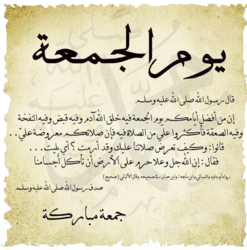 يوم الجمعة
قال رسول الله صلى الله عليه وسلم
إن من أفضل أيامكم يوم الجمعة فيه خلق الله آدم وفيه قبض وفيه النفخة
وفيه الصعقة فأكثروا علي من الصلاة فيه فإن صلاتكم معروضة علي..
قالوا: وكيف تعرض صلاتنا عليك وقد أرمت؟ أي بليت...
فقال: إن الله جل وعلا حرم على الأرض أن تأكل أجسامنا
صدق رسول الله صلى الله عليه وسلم
جمعة مباركة